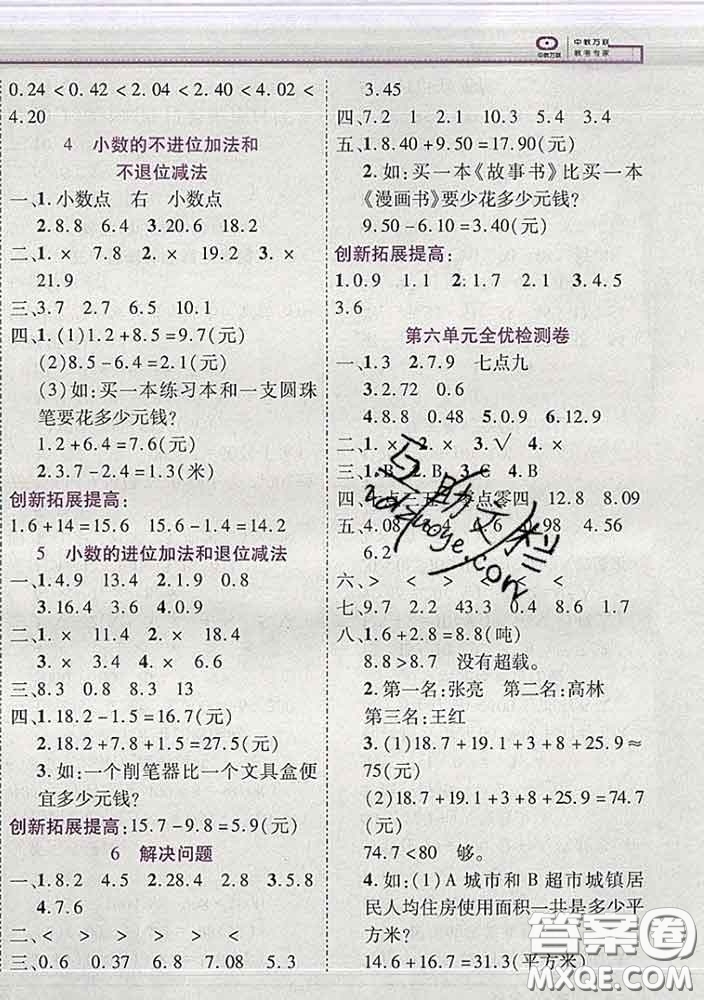 中教万联
中教万联
教考专家
0.24＜0.42＜2.04＜2.40＜4.02＜
4.20
4 小数的不进位加法和
不退位减法
一、1.小数点 右 小数点
2.8.8 6.4 3.20.6 18.2
二、1.× 7.8 2.× 19.2 3.×
21.9
三、3.7 2.7 6.5 10.1
四、1.(1)1.2+8.5=9.7(元)
(2)8.5-6.4=2.1(元)
(3)如:买一本练习本和一支圆珠
笔要花多少元钱?
1.2+6.4=7.6(元)
2.3.7-2.4=1.3(米)
创新拓展提高:
1.6+14=15.6 15.6-1.4=14.2
5 小数的进位加法和退位减法
一、1.4.9 13.4 2.1.9 0.8
3.16.4 3.6 4.0.9
二、1.× 11.4 2.× 18.4
3.× 3.4 4.× 6.6
三、8.3 0.8 8.3 13
四、1.18.2-1.5=16.7(元)
2.18.2+7.8+1.5=27.5(元)
3.如:一个削笔器比一个文具盒便
宜多少元钱?
创新拓展提高:15.7-9.8=5.9(元)
6 解决问题
一、1.8.2 4.5 2.28.4 2.8 3.5.8
4.7.6
二、＜ ＞ ＞ ＞ ＞ ＜
三、0.6 0.37 6.8 7.08 5.3
3.45
四、7.2 1 2.1 10.3 5.4 3.4
五、1.8.40+9.50=17.90(元)
2.如:买一本《故事书》比买一本
《漫画书》要少花多少元钱?
9.50-6.10=3.40(元)
创新拓展提高:
1.0.9 1.1 2.1.7 2.1 3.4.5
3.6
第六单元全优检测卷
一、1.3 2.7.9 七点九
3.2.72 0.6
4.8.8 0.48 5.0.9 6.12.9
二、1.× 2.× 3.√ 4.×
三、1.B 2.B 3.C 4.B
四、 点三五 零点零四 12.8 8.09
五、4.08 4.6 0.98 4.56
6.2
六、＞ ＜ ＞ ＜ ＜ ＜
七、9.7 2.2 43.3 0.4 8.6 1.9
八、1.6+2.8=8.8(吨)
8.8＞8.7 没有超载。
2.第一名:张亮 第二名:高林
第三名:王红
3.(1)18.7+19.1+3+8+25.9≈
75(元)
(2)18.7+19.1+3+25.9=74.7
(元)
74.7＜80 够。
4.如:(1)A城市和B超市城镇居
民人均住房使用面积一共是多少平
方米?
14.6+16.7=31.3(平方米)
互助文档
zuoye.com
答案圈
MXQE.COM